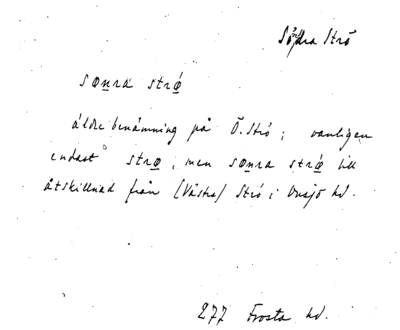 Södra Strö
sơṉra strø̱
äldre benämning på Ö. Strö; vanligen
endast strø̱, men sơṉra strø̱ till
åtskillnad från (Västra) Strö i Onsjö hd.
277 Frosta hd.